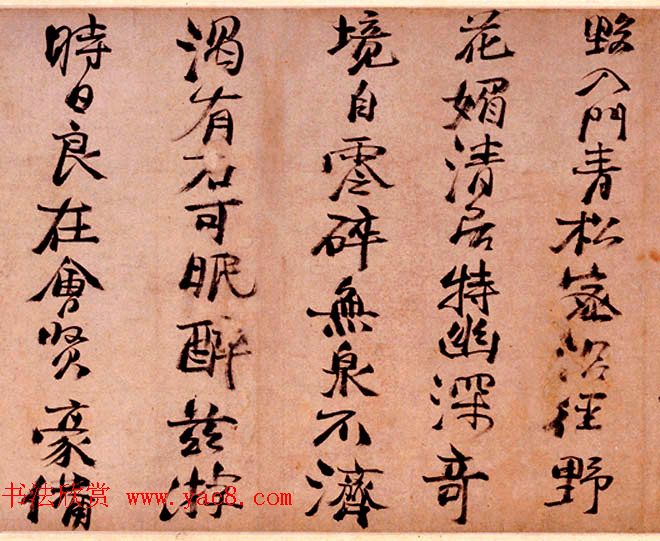 入門青松密沿徑野
花媚清居特幽深奇
境自零碎無泉不濟
渴有石可眠醉茲游
時日良在會賢豪備
书法欣赏 www.yac8.com